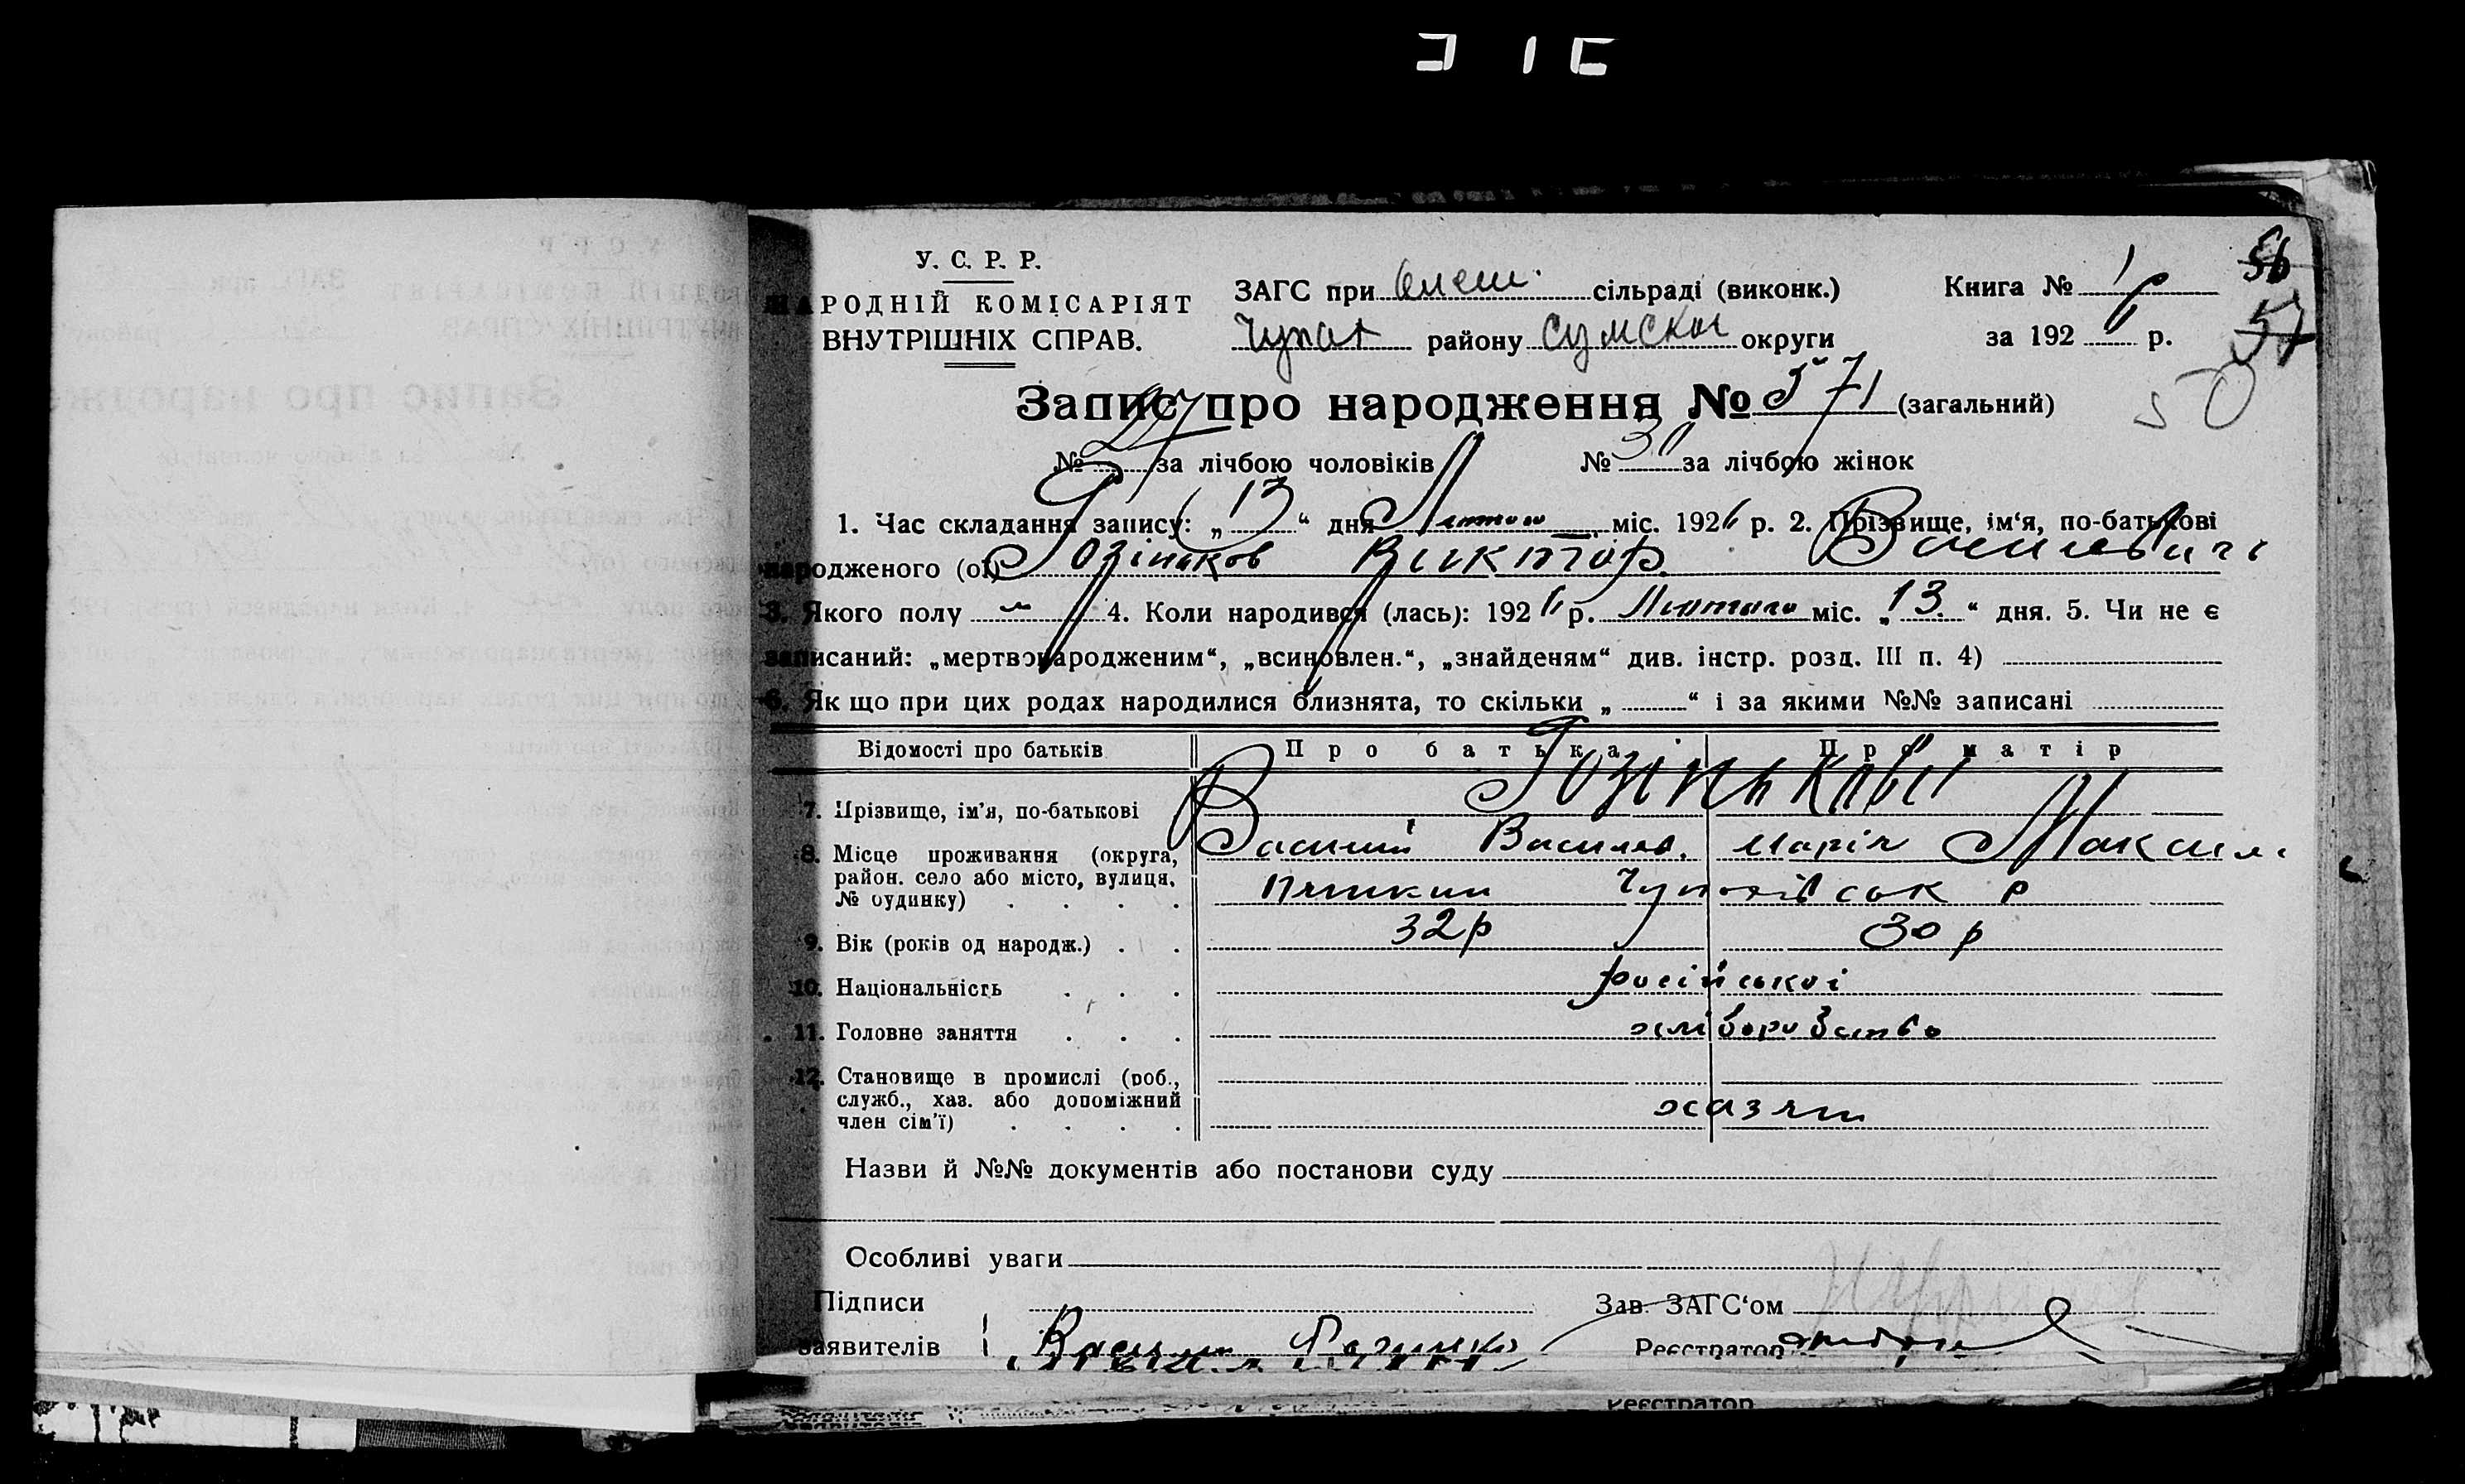 У. С. Р. Р.
НАРОДНІЙ КОМІСАРІЯТ
ВНУТРІШНІХ СПРАВ.
ЗАГС при Олеш. сільраді (виконк.)
Чупах району Сумской округи
Книга № 1
за 1926 р.
56
57
50
Запис про народження № 571 (загальний)
№ 27 за лічбою чоловіків № 30 за лічбою жінок
1. Час складання запису: „13“ дня Лютого міс. 1926 р. 2. Прізвище, ім‘я, по-батькові
народженого (ої) Виктор Васильевичь
3. Якого полу 4. Коли народився (лась): 1926 р. Лютого міс. „13.“ дня. 5. Чи не є
записаний: „мертвонародженим“, „всиновлен.“, „знайденям“ див. інстр. розд. III п. 4)
6. Як що при цих родах народилися близнята, то скільки „ “ і за якими №№ записані
Відомості про батьків Про батька Про матір
7. Прізвище, ім’я, по-батькові
Василий Василев. Марія Максим.
8. Місце проживання (округа, район. село або місто, вулиця, № будинку) Чупахівськ р
9. Вік (років од народж.) 32р 30р
10. Національність російської
11. Головне заняття хліборобство
12. Становище в промислі (роб., служб., хаз. або допоміжний член сім’ї) хазяин
Назви й №№ документів або постанови суду
Особливі уваги
Підписи Зав. ЗАГС‘ом
заявителів Реєстратор
Реєстратор